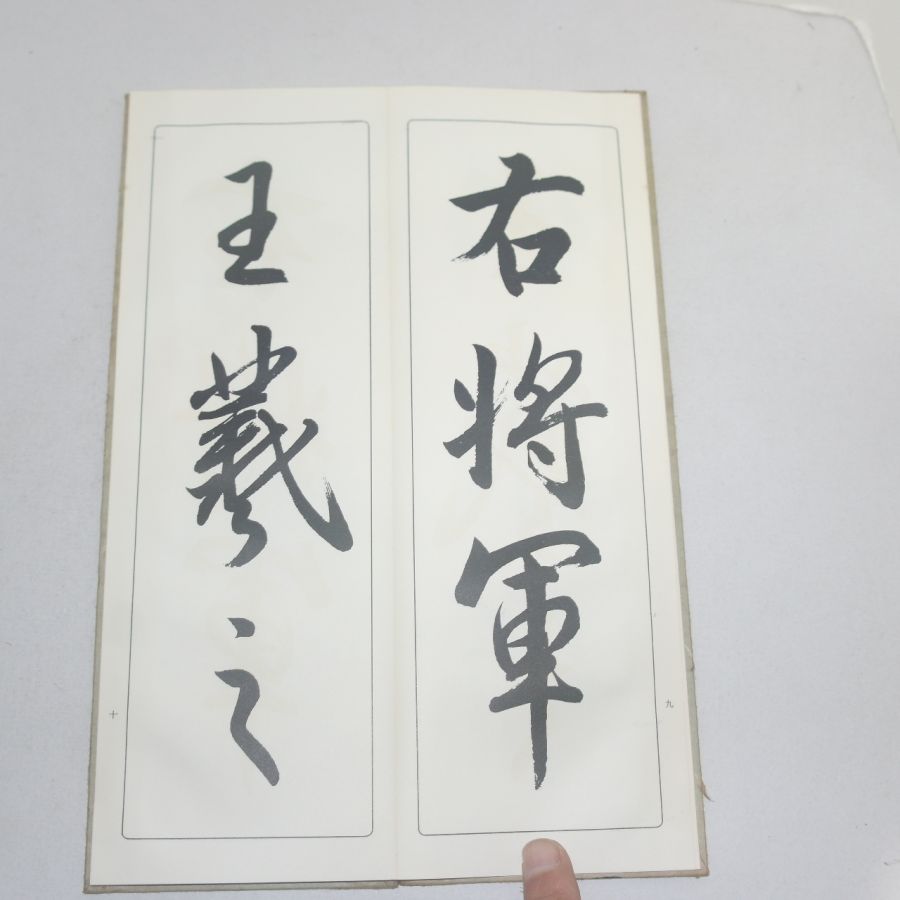 右將軍
九
王羲之
十